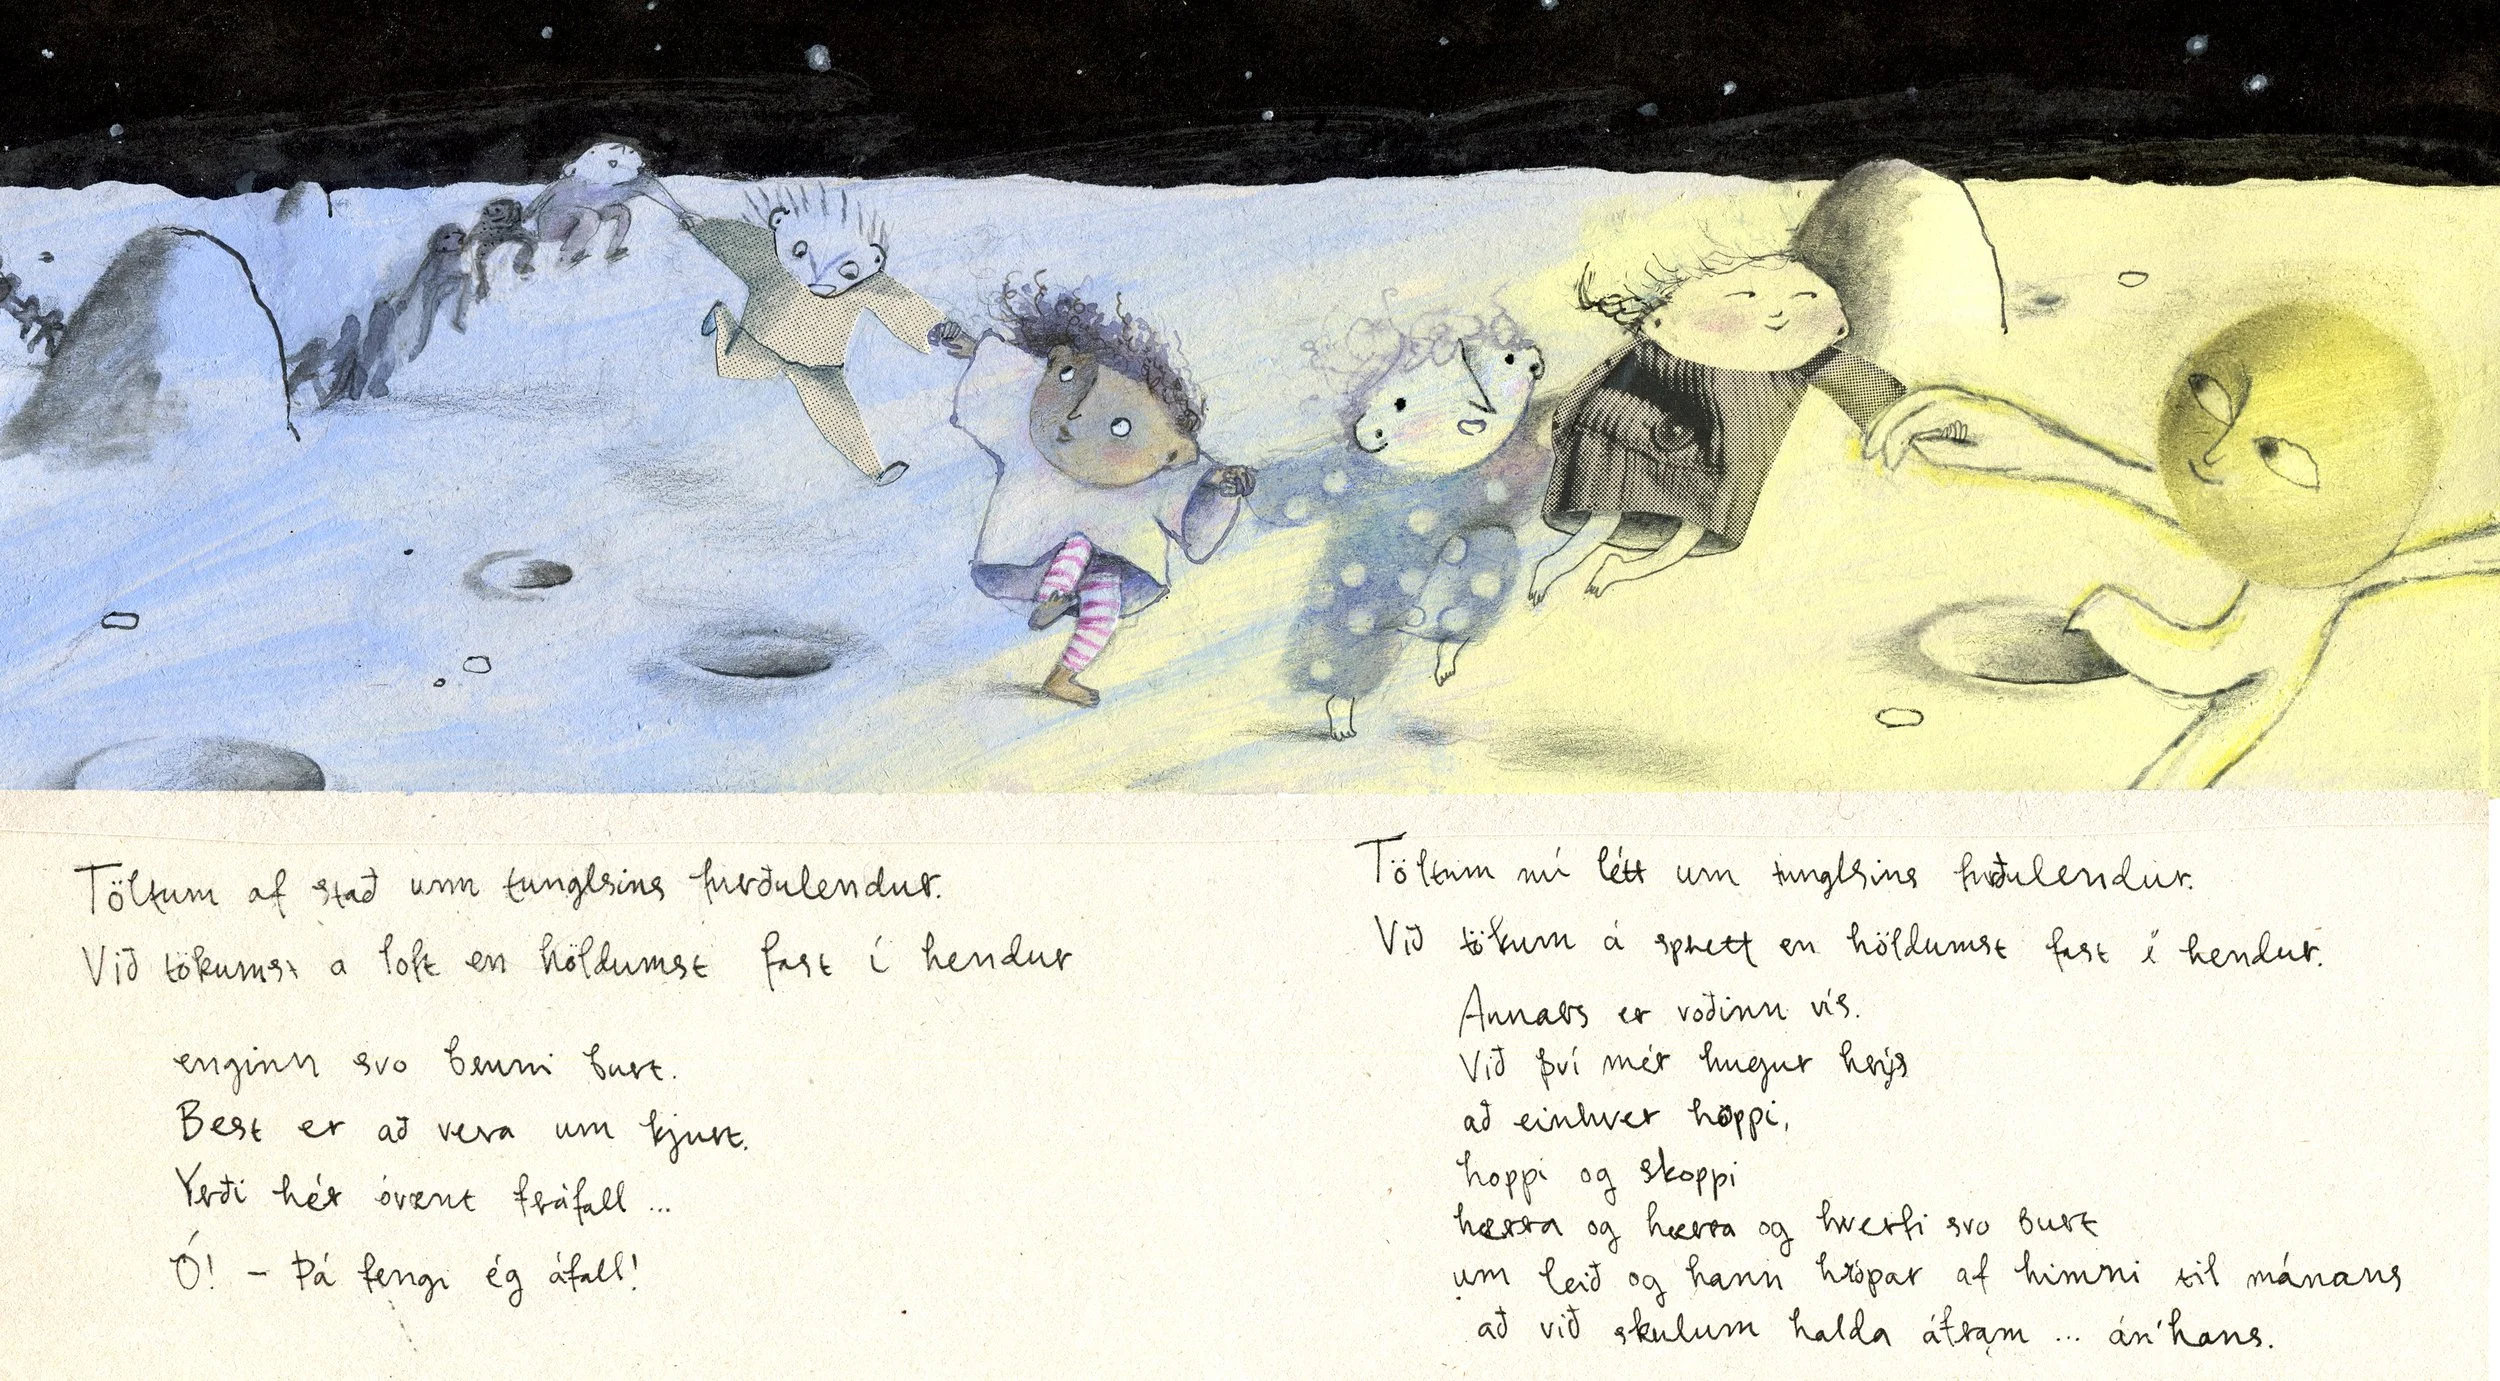 Töltum af stað um tunglsins furðulendur.
Við tökumst a loft en höldumst fast í hendur
enginn svo bruni burt.
Best er að vera um kjurt.
Yrði hér óvænt fráfall...
Ó! - Þá fengi ég áfall!
Töltum nú létt um tunglsins furðulendur.
Við tökum á sprett en höldumst fast í hendur.
Annars er voðinn vís.
Við því mér hugur hrýs
að einhver hoppi,
hoppi og skoppi
hærra og hærra og hverfi svo burt
um leið og hann hrópar af himni til mánans
að við skulum halda áfram ... án'hans.